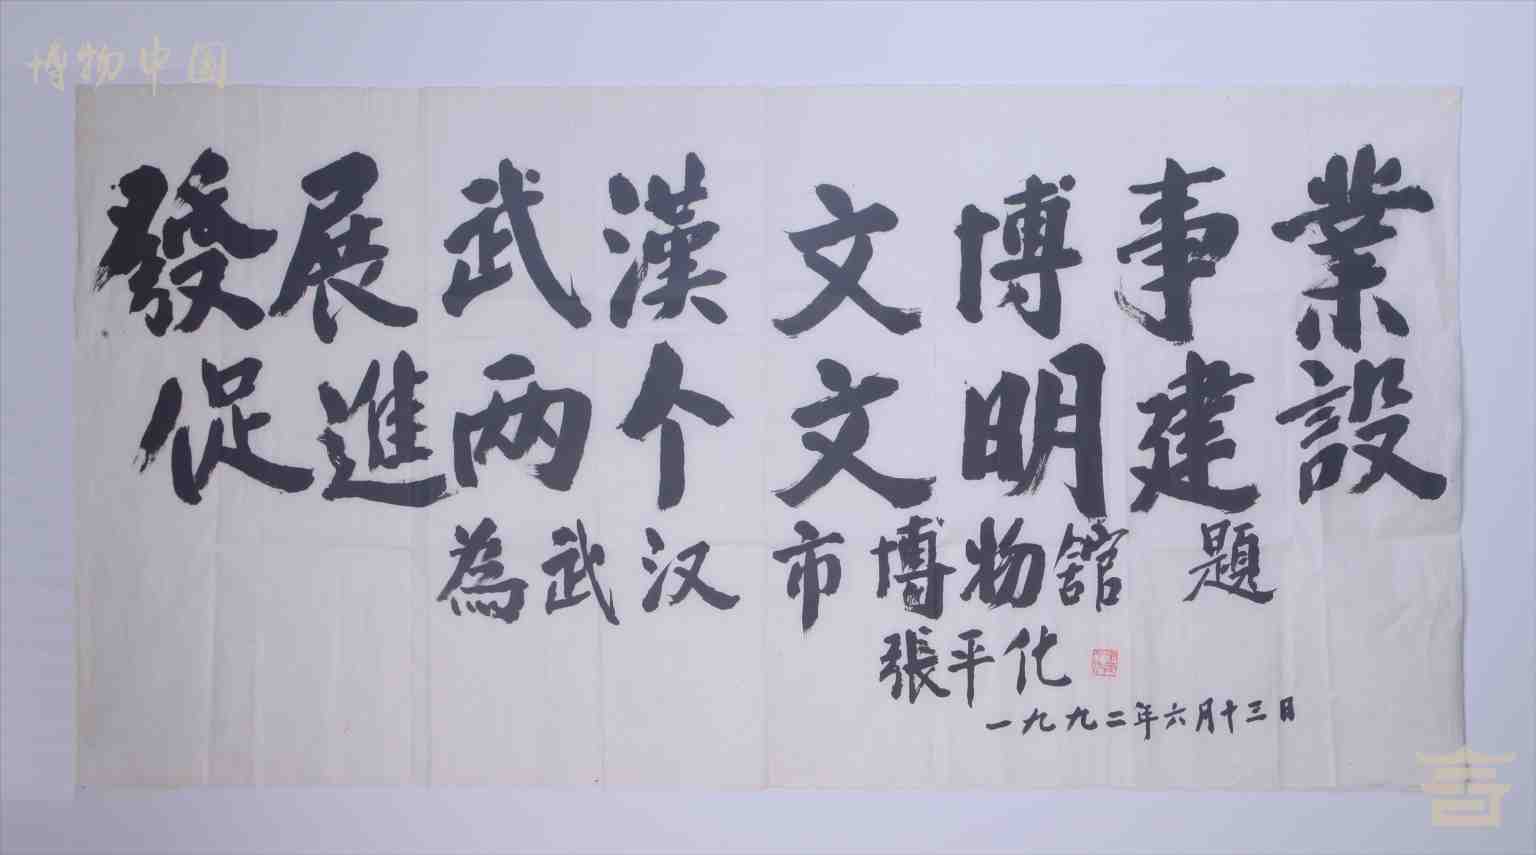 博物中国
發展武漢文博事業
促進两个文明建設
為武汉市博物舘 題
張平化
一九九二年六月十三日